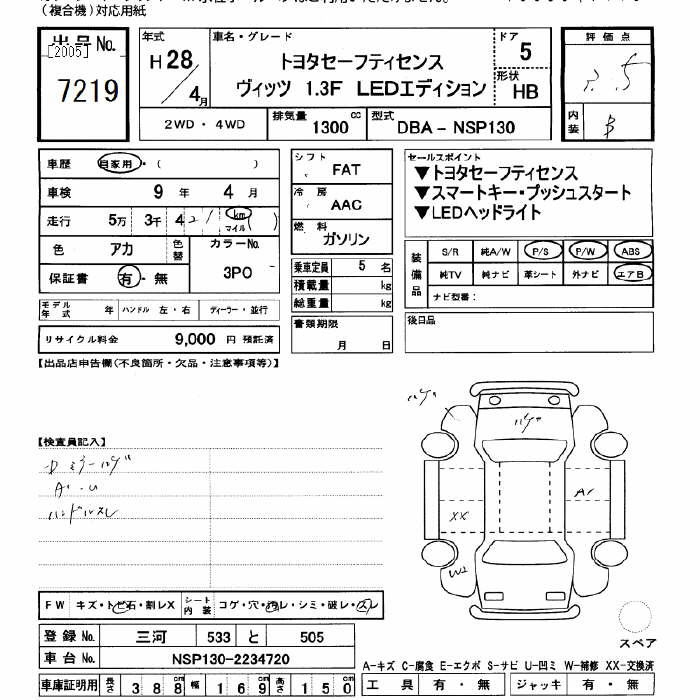 （複合機）対応用紙
出品 No.
[2005]
7219
年式
H 28 / 4 月
車名・グレード
トヨタセーフティセンス
ヴィッツ 1.3F LEDエディション
ドア 5
形状 HB
評価点
内装 B
2WD ・ 4WD
排気量 1300 cc
型式 DBA - NSP130
車歴 自家用・（ ）
車検 9 年 4 月
走行 5万 3千 4 2 1 （km マイル）
色 アカ 色替
カラーNo. 3P0
保証書 有・無
モデル年式 年 ハンドル 左・右 ディーラー・並行
リサイクル料金 9,000 円 預託済
シフト FAT
冷房 AAC
燃料 ガソリン
乗車定員 5 名
積載量 kg
総重量 kg
書類期限
月 日
セールスポイント
▼トヨタセーフティセンス
▼スマートキー・プッシュスタート
▼LEDヘッドライト
装備品
S/R 純A/W P/S P/W ABS
純TV 純ナビ 革シート 外ナビ エアB
ナビ型番：
後日品
【出品店申告欄（不良箇所・欠品・注意事項等）】
【検査員記入】
A1
XX
W2
FW キズ・トビ石・割レX
シート内装 コゲ・穴・汚レ・シミ・破レ・スレ
登録 No. 三河 533 と 505
車台 No. NSP130-2234720
車庫証明用 長さ 388 幅 169 高さ 150
スペア
A-キズ C-腐食 E-エクボ S-サビ U-凹ミ W-補修 XX-交換済
工具 有・無 ジャッキ 有・無